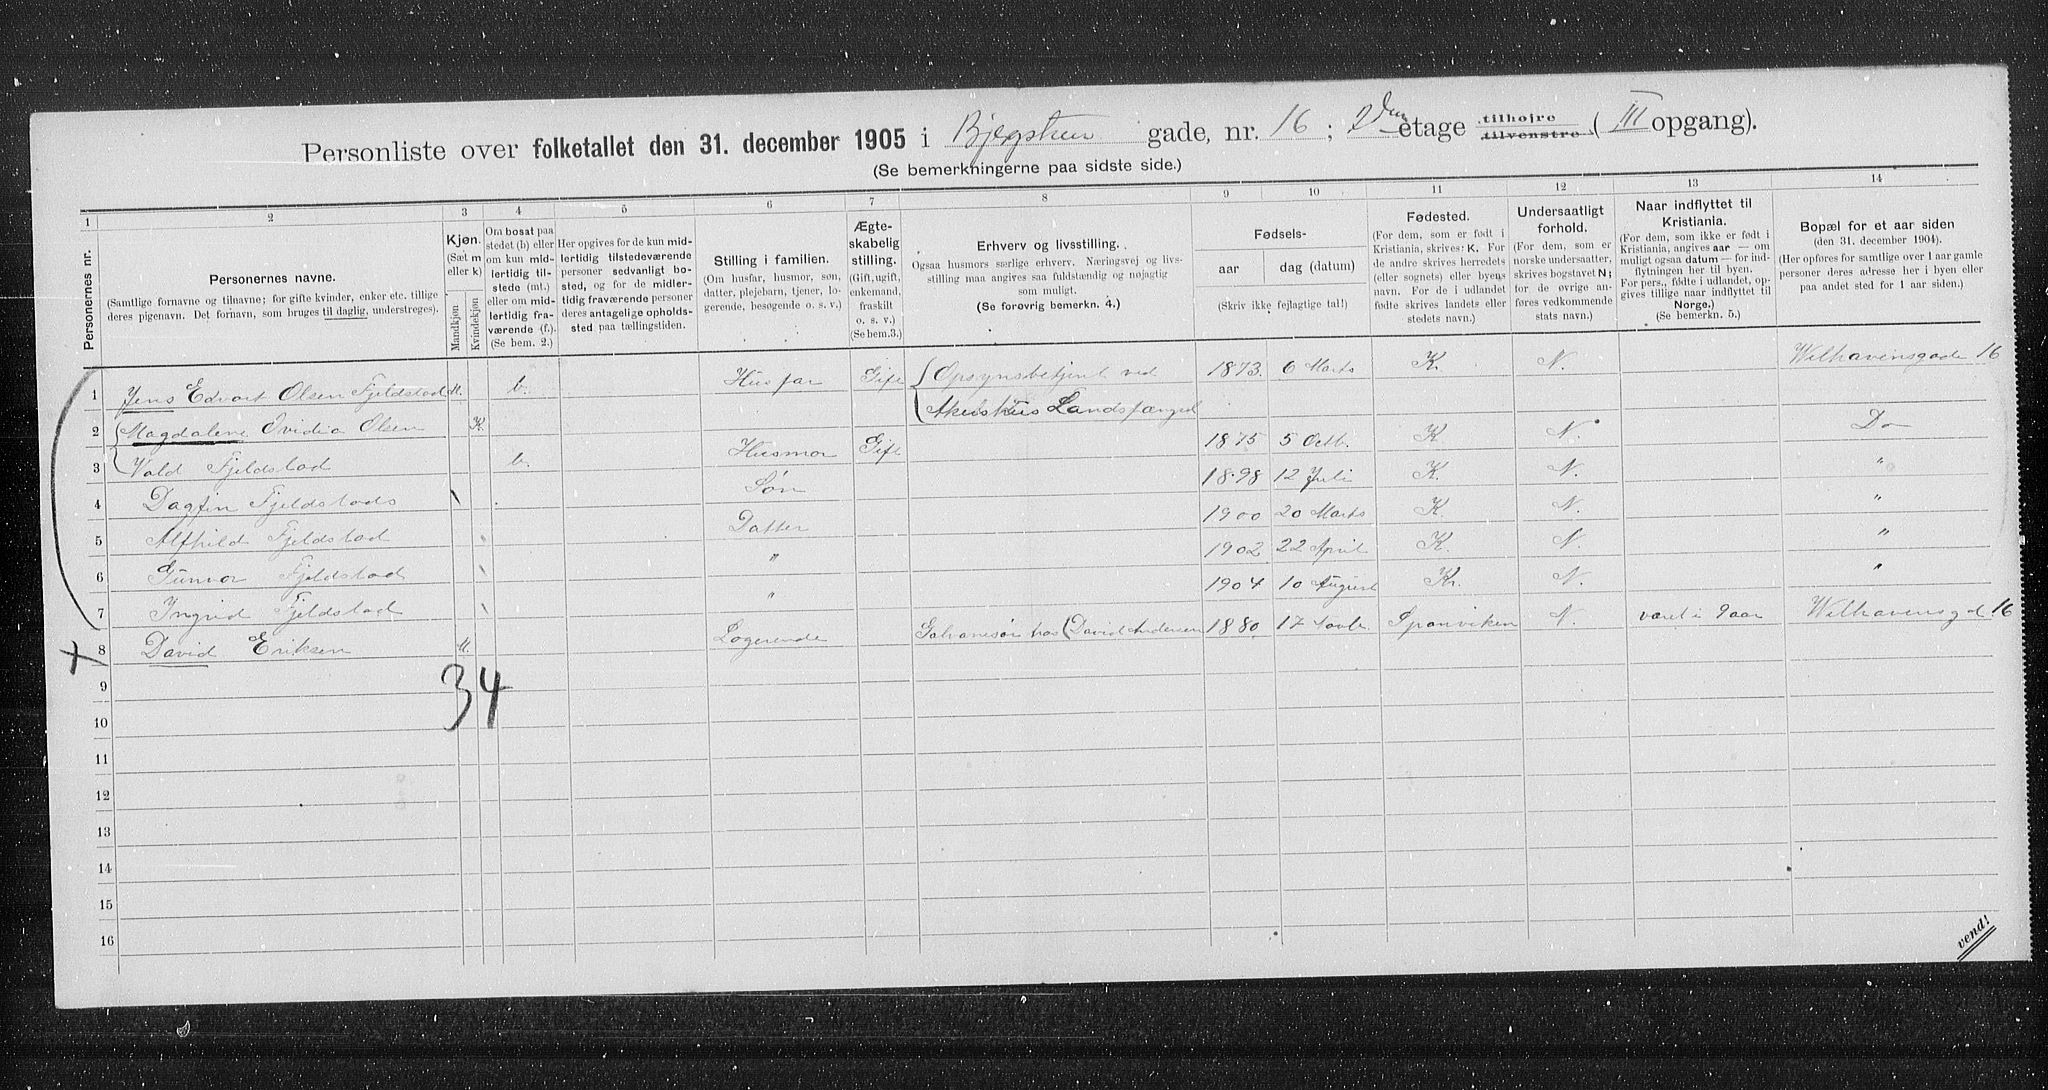 Personliste over folketallet den 31. december 1905 i gade, nr. 16; 2den etage tilhøjre tilvenstre (III opgang).
(Se bemerkningerne paa sidste side.)
1 2 3 4 5 6 7 8 9 10 11 12 13 14
Personernes nr.
Personernes navne.
(Samtlige fornavne og tilnavne; for gifte kvinder, enker etc. tillige
deres pigenavn. Det fornavn, som bruges til daglig, understreges).
Kjøn.
(Sæt m
eller k)
Mandkjøn
Kvindekjøn
Om bosat paa
stedet (b) eller
om kun mid-
lertidig til-
stede (mt.)
eller om mid-
lertidig fra-
værende (f.).
(Se bem. 2.)
Her opgives for de kun mid-
lertidig tilstedeværende
personer sedvanligt bo-
sted, og for de midler-
tidig fraværende personer
deres antagelige opholds-
sted paa tællingstiden.
Stilling i familien.
(Om husfar, husmor, søn,
datter, plejebarn, tjener, lo-
gerende, besøgende o. s. v.)
Ægte-
skabelig
stilling.
(Gift, ugift,
enkemand,
fraskilt
o. s. v.)
(Se bem.3.)
Erhverv og livsstilling.
Ogsaa husmors særlige erhverv. Næringsvej og livs-
stilling maa angives saa fuldstændig og nøjagtig
som muligt.
(Se forøvrig bemerkn. 4.)
Fødsels-
aar dag (datum)
(Skriv ikke fejlagtige tal!)
Fødested.
(For dem, som er født i
Kristiania, skrives: K. For
de andre skrives herredets
(eller sognets) eller byens
navn. For de i udlandet
fødte skrives landets eller
stedets navn.)
Undersaatligt
forhold.
(For dem, som er
norske undersaatter,
skrives bogstavet N;
for de øvrige an-
føres vedkommende
stats navn.)
Naar indflyttet til
Kristiania.
(For dem, som ikke er født i
Kristiania, angives aar — om
muligt ogsaa datum — for ind-
flytningen her til byen.
For pers., fødte i udlandet, op-
gives tillige naar indflyttet til
Norge.)
(Se bemerkn. 5.)
Bopæl for et aar siden
(den 31. december 1904).
(Her opføres for samtlige over 1 aar gamle
personer deres adresse her i byen eller
paa andet sted for 1 aar siden.)
1 Jens Edvart Olsen Fjeldstad M. b. Husfar Gift Opsynsbetjent ved 1873. 6 Marts K. N. Welhavensgade 16
Akershus Landsfængsel
2 Magdalene Ovidia Olsen K. 1875 5 Octb. K. N. Do
3 Fjeldstad b. Husmor Gift 1898 12 Juli K. N. "
4 Dagfin Fjeldstads Søn 1900 20 Marts K. N. "
5 Alfhild Fjeldstad Datter 1902 22 April K. N. "
6 Gunvor Fjeldstad " 1904 10 August Kr. N. "
7 Ingrid Fjeldstad "
8 David Eriksen M. Logerende hos (David Andersen 1880 17 N. været i 9 aar Welhavensgd 16
34
9
10
11
12
13
14
15
16
vend!